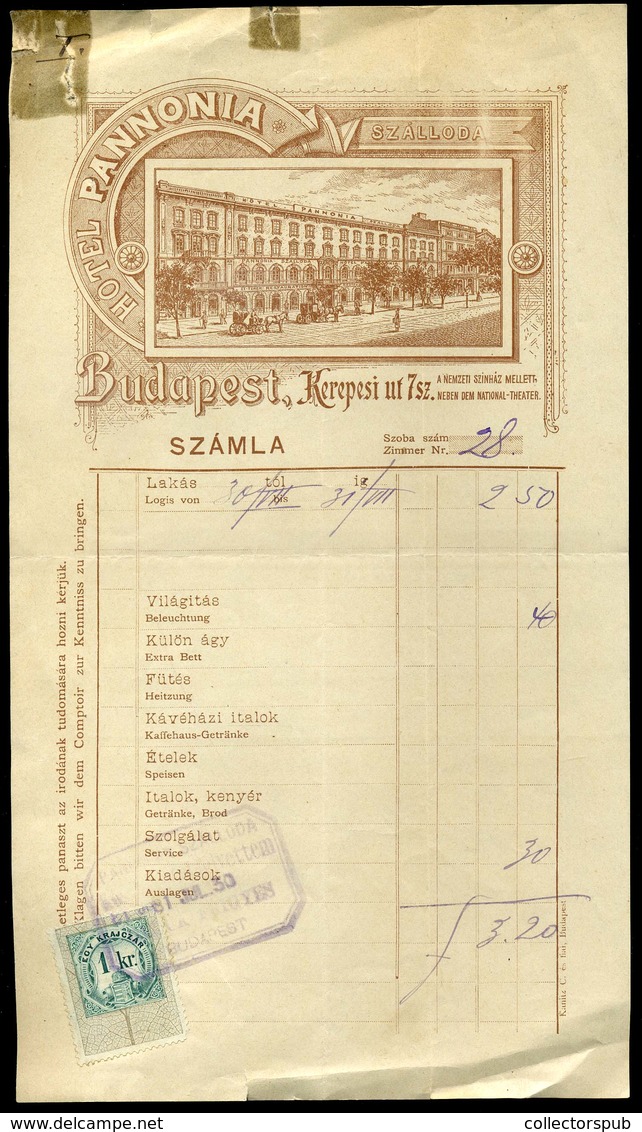 I.
HOTEL PANNONIA
SZÁLLODA
HÔTEL PANNONIA
Budapest, Kerepesi ut 7sz.
A NEMZETI SZINHÁZ MELLETT,
NEBEN DEM NATIONAL-THEATER.
SZÁMLA
Szoba szám
Zimmer Nr. 28.
Lakás tól ig
Logis von 30/VIII bis 31/VIII 2 50
Világitás
Beleuchtung 40
Külön ágy
Extra Bett
Fütés
Heitzung
Kávéházi italok
Kaffehaus-Getränke
Ételek
Speisen
Italok, kenyér
Getränke, Brod
Szolgálat
Service 30
Kiadások
Auslagen
f 3.20
etleges panaszt az irodának tudomására hozni kérjük.
Klagen bitten wir dem Comptoir zur Kenntniss zu bringen.
SZÁLLODA
30
BUDAPEST
EGY KRAJCZÁR
1 kr.
Kanitz C. és fiai, Budapest
delcampe.net
collectorspub